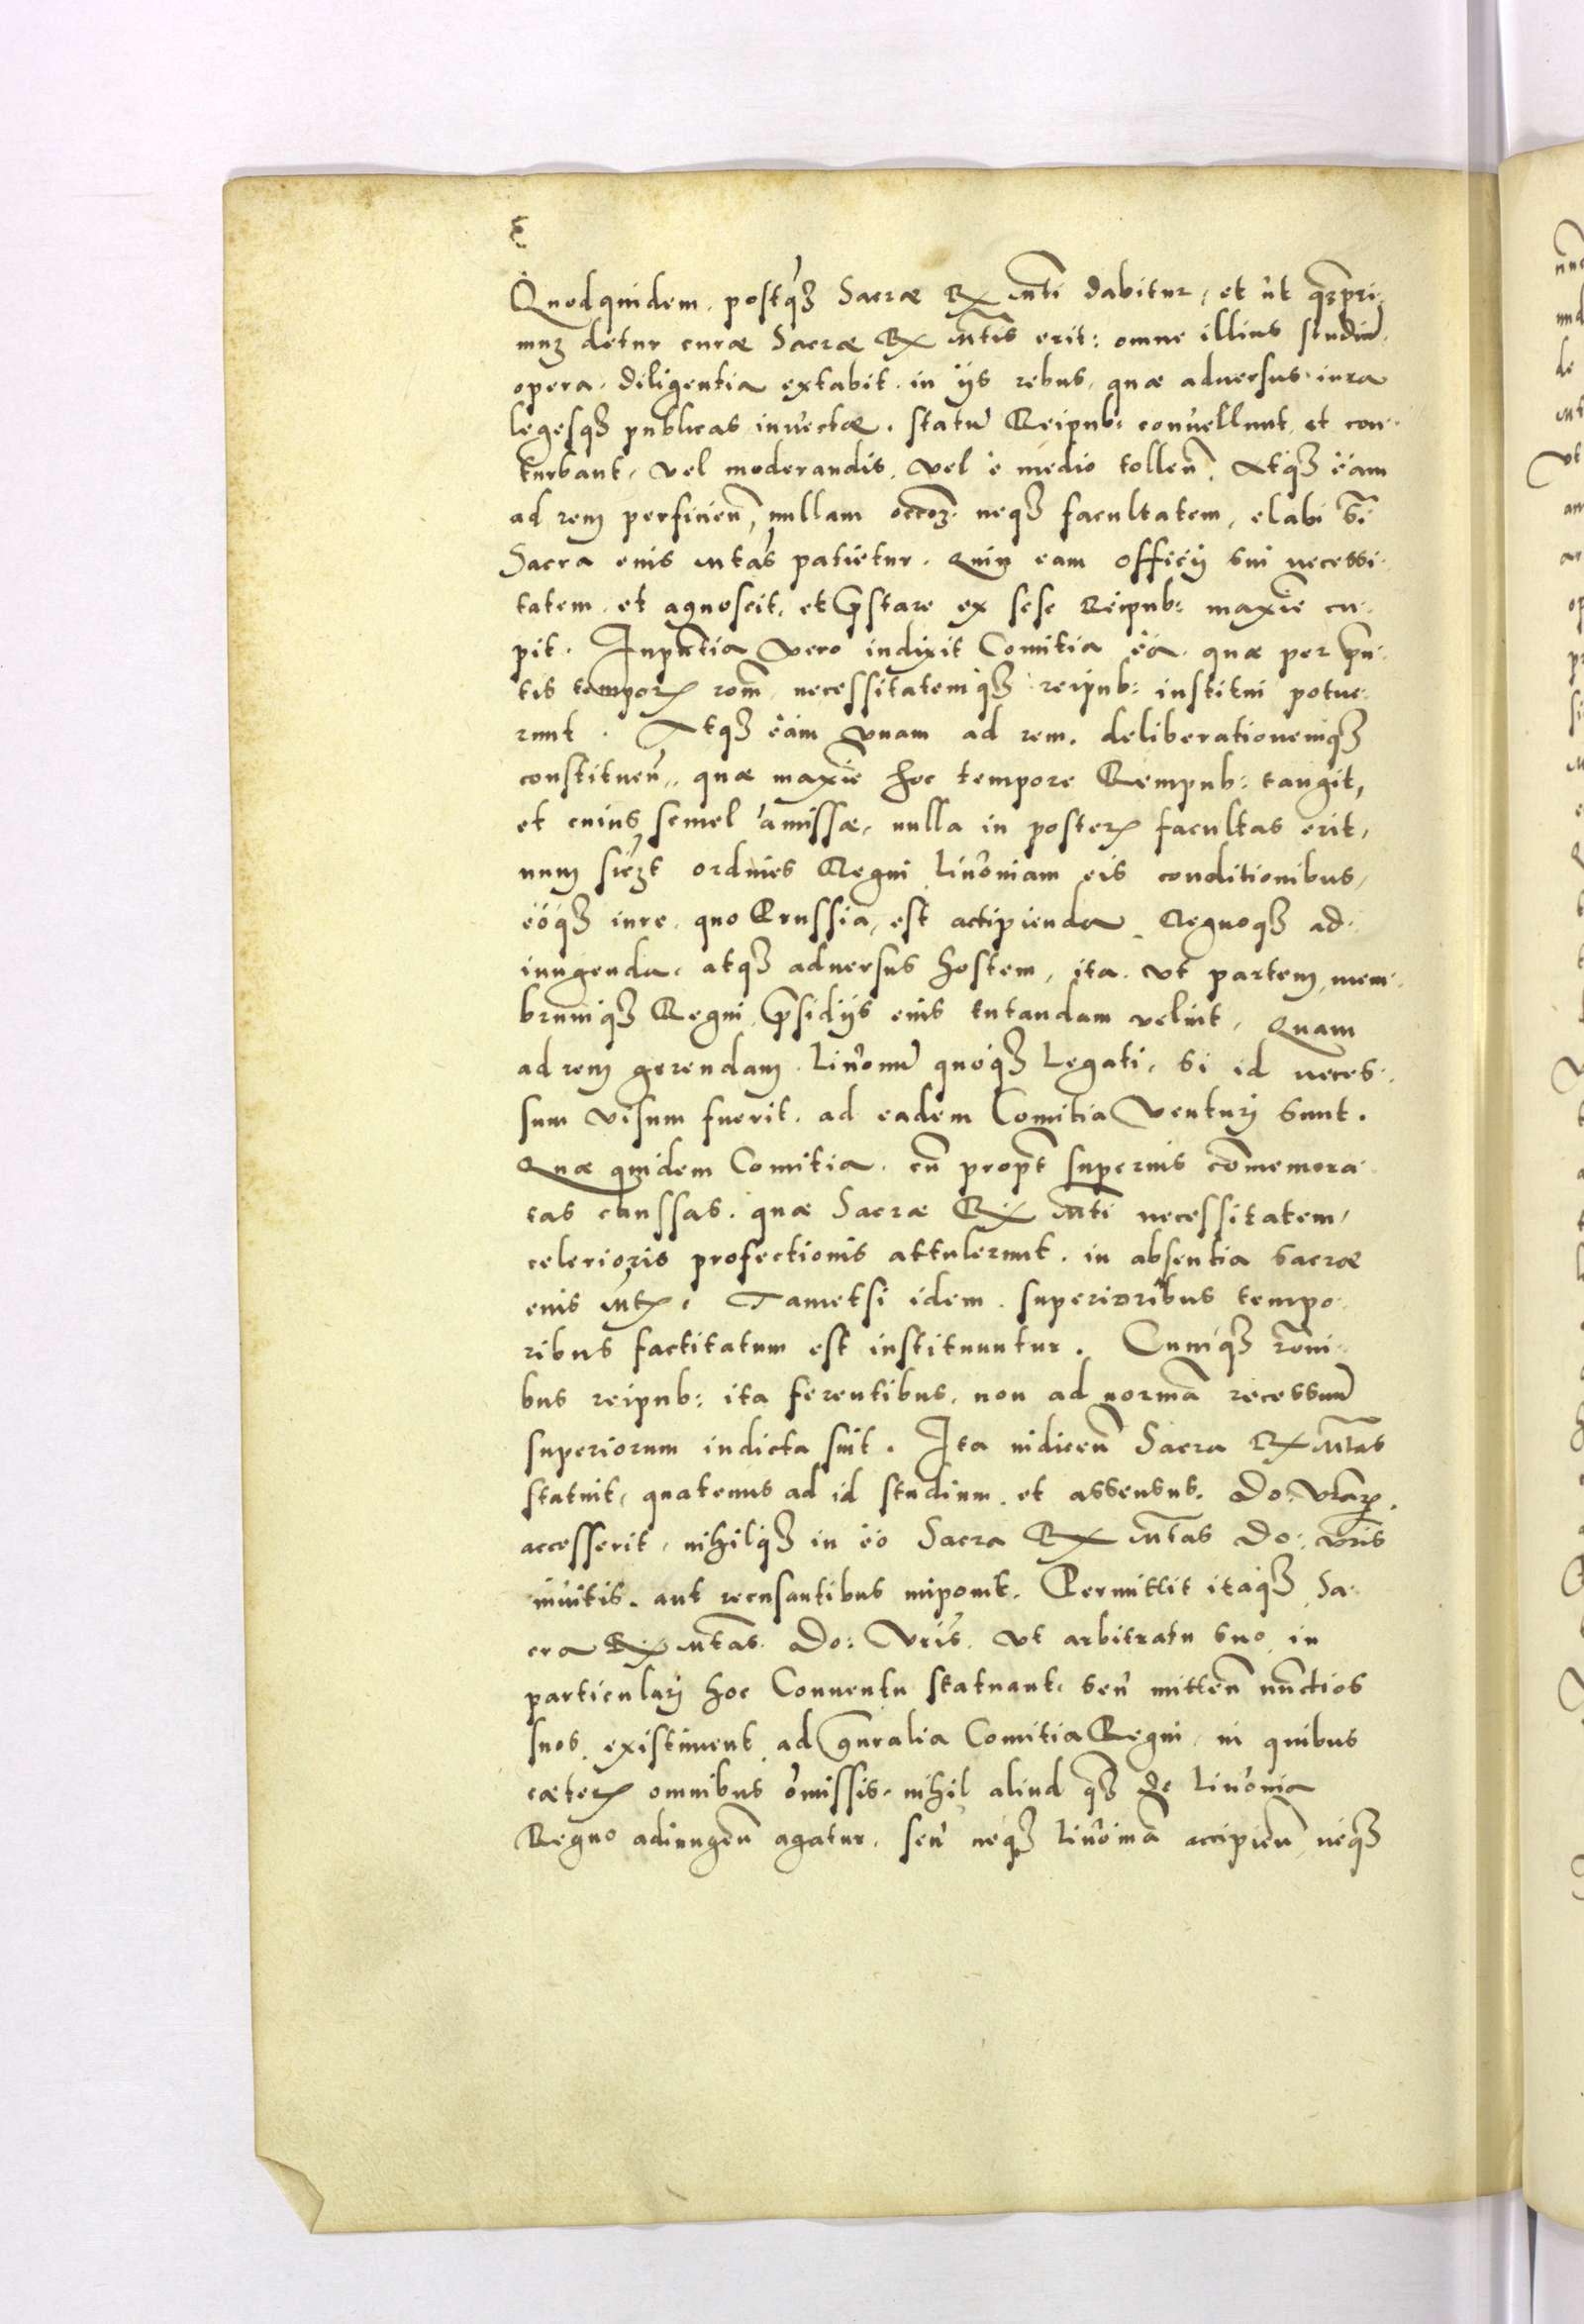 Quodquidem, postq̃ꝫ Sacræ Rꝫ Mti dabitur, et ut q̃ꝫpri-
muꝫ detur curæ Sacræ Rꝫ Mtis erit: omne illius studiũ,
opera, diligentia extabit, in ijs rebus, quæ aduersus iura
legesqꝫ publicas inuectæ, statũ Reipub: conuellunt, et con-
turbant, vel moderandis, vel è medio tolleñ. Atqꝫ eam
ad rem perficieñ, nullam occoẽꝫ neqꝫ facultatem, elabi si͂
Sacra eius Mtas patietur. Quin eam officij sui necessi-
tatem et agnoscit, et p̃stare ex sese Reipub: maxiẽ cu-
pit. Inpñtia vero indixit Comitia ea, quæ per pñ-
tis temporꝭ roẽm necessitatemqꝫ reipub: institui potue-
runt. Atqꝫ eam vnam ad rem, deliberationemqꝫ
constitueñ, quæ maxiẽ hoc tempore Rempub: tangit,
et cuius semel amissæ, nulla in posterꝭ facultas erit,
num sient ordines Regni Liuoniam eis conditionibus,
eoqꝫ iure, quo Prussia, est accipienda Regnoqꝫ ad-
iungenda, atqꝫ aduersus hostem, ita vt partem, mem-
brumqꝫ Regni, p̃sidijs eius tutandam velint, Quam
ad rem gerendam Liuonũ quoqꝫ Legati, si id neces-
sum visum fuerit, ad eadem Comitia venturi sunt.
Quæ quidem Comitia, cũ propt̃ superius com̃emora-
tas caussas, quæ Sacræ Rꝫ Mti necessitatem,
celerioris profectionis attulerunt, in absentia Sacræ
eius Mtꝭ, Tametsi idem superioribus tempo-
ribus factitatum est instituuntur. Cumqꝫ roñi-
bus reipub: ita ferentibus, non ad normã recessuũ
superiorum indicta sint. Ita indiceñ Sacra Rꝫ Mtas
statuit, quatenus ad id studium et assensus, Do: vrarꝭ
accesserit, nihilqꝫ in eo Sacra Rꝫ Mtas Do: vris
inuitis, aut recusantibus imponit. Permittit itaqꝫ Sa-
cra Rꝫ Mtas Do: vris, vt arbitratu suo in
particulari hoc Conuentu statuant, seu mitteñ nũctios
suos existiment ad gñralia Comitia Regni, in quibus
cæterꝭ omnibus omissis, nihil aliud q̃ꝫ de Liuonia
Regno adiungeñ agatur, seu neqꝫ Liuoniã accipieñ, neqꝫ